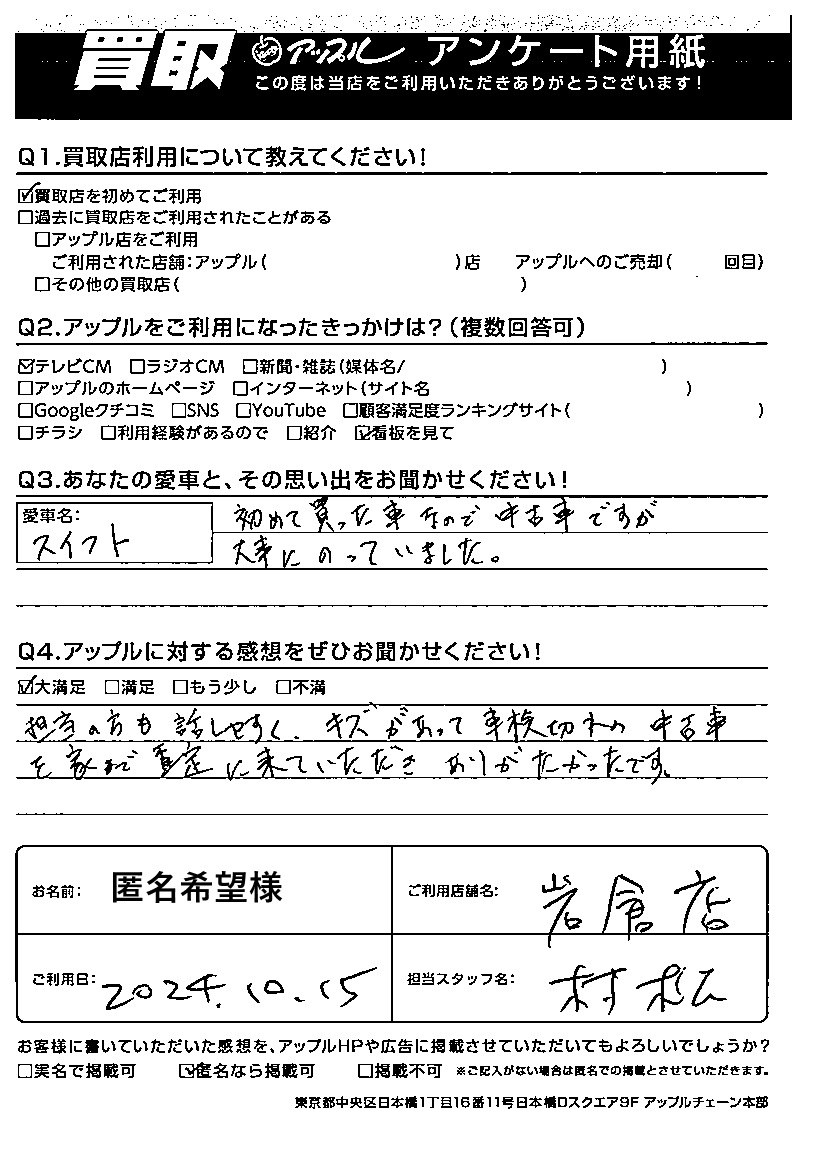 買取 アップル アンケート用紙
この度は当店をご利用いただきありがとうございます!
Q1.買取店利用について教えてください!
☑買取店を初めてご利用
□過去に買取店をご利用されたことがある
□アップル店をご利用
ご利用された店舗:アップル( )店 アップルへのご売却( 回目)
□その他の買取店( )
Q2.アップルをご利用になったきっかけは?(複数回答可)
☑テレビCM □ラジオCM □新聞・雑誌(媒体名/ )
□アップルのホームページ □インターネット(サイト名 )
□Googleクチコミ □SNS □YouTube □顧客満足度ランキングサイト( )
□チラシ □利用経験があるので □紹介 ☑看板を見て
Q3.あなたの愛車と、その思い出をお聞かせください!
愛車名:
スイフト
初めて買った車なので中古車ですが
大事にのっていました。
Q4.アップルに対する感想をぜひお聞かせください!
☑大満足 □満足 □もう少し □不満
担当の方も話しやすく、キズがあって車検切れの中古車
を家まで査定に来ていただきありがたかったです。
お名前: 匿名希望様
ご利用店舗名: 岩倉店
ご利用日: 2024.10.15
担当スタッフ名: 村松
お客様に書いていただいた感想を、アップルHPや広告に掲載させていただいてもよろしいでしょうか?
□実名で掲載可 ☑匿名なら掲載可 □掲載不可 ※ご記入がない場合は匿名での掲載とさせていただきます。
東京都中央区日本橋1丁目16番11号日本橋Dスクエア9F アップルチェーン本部